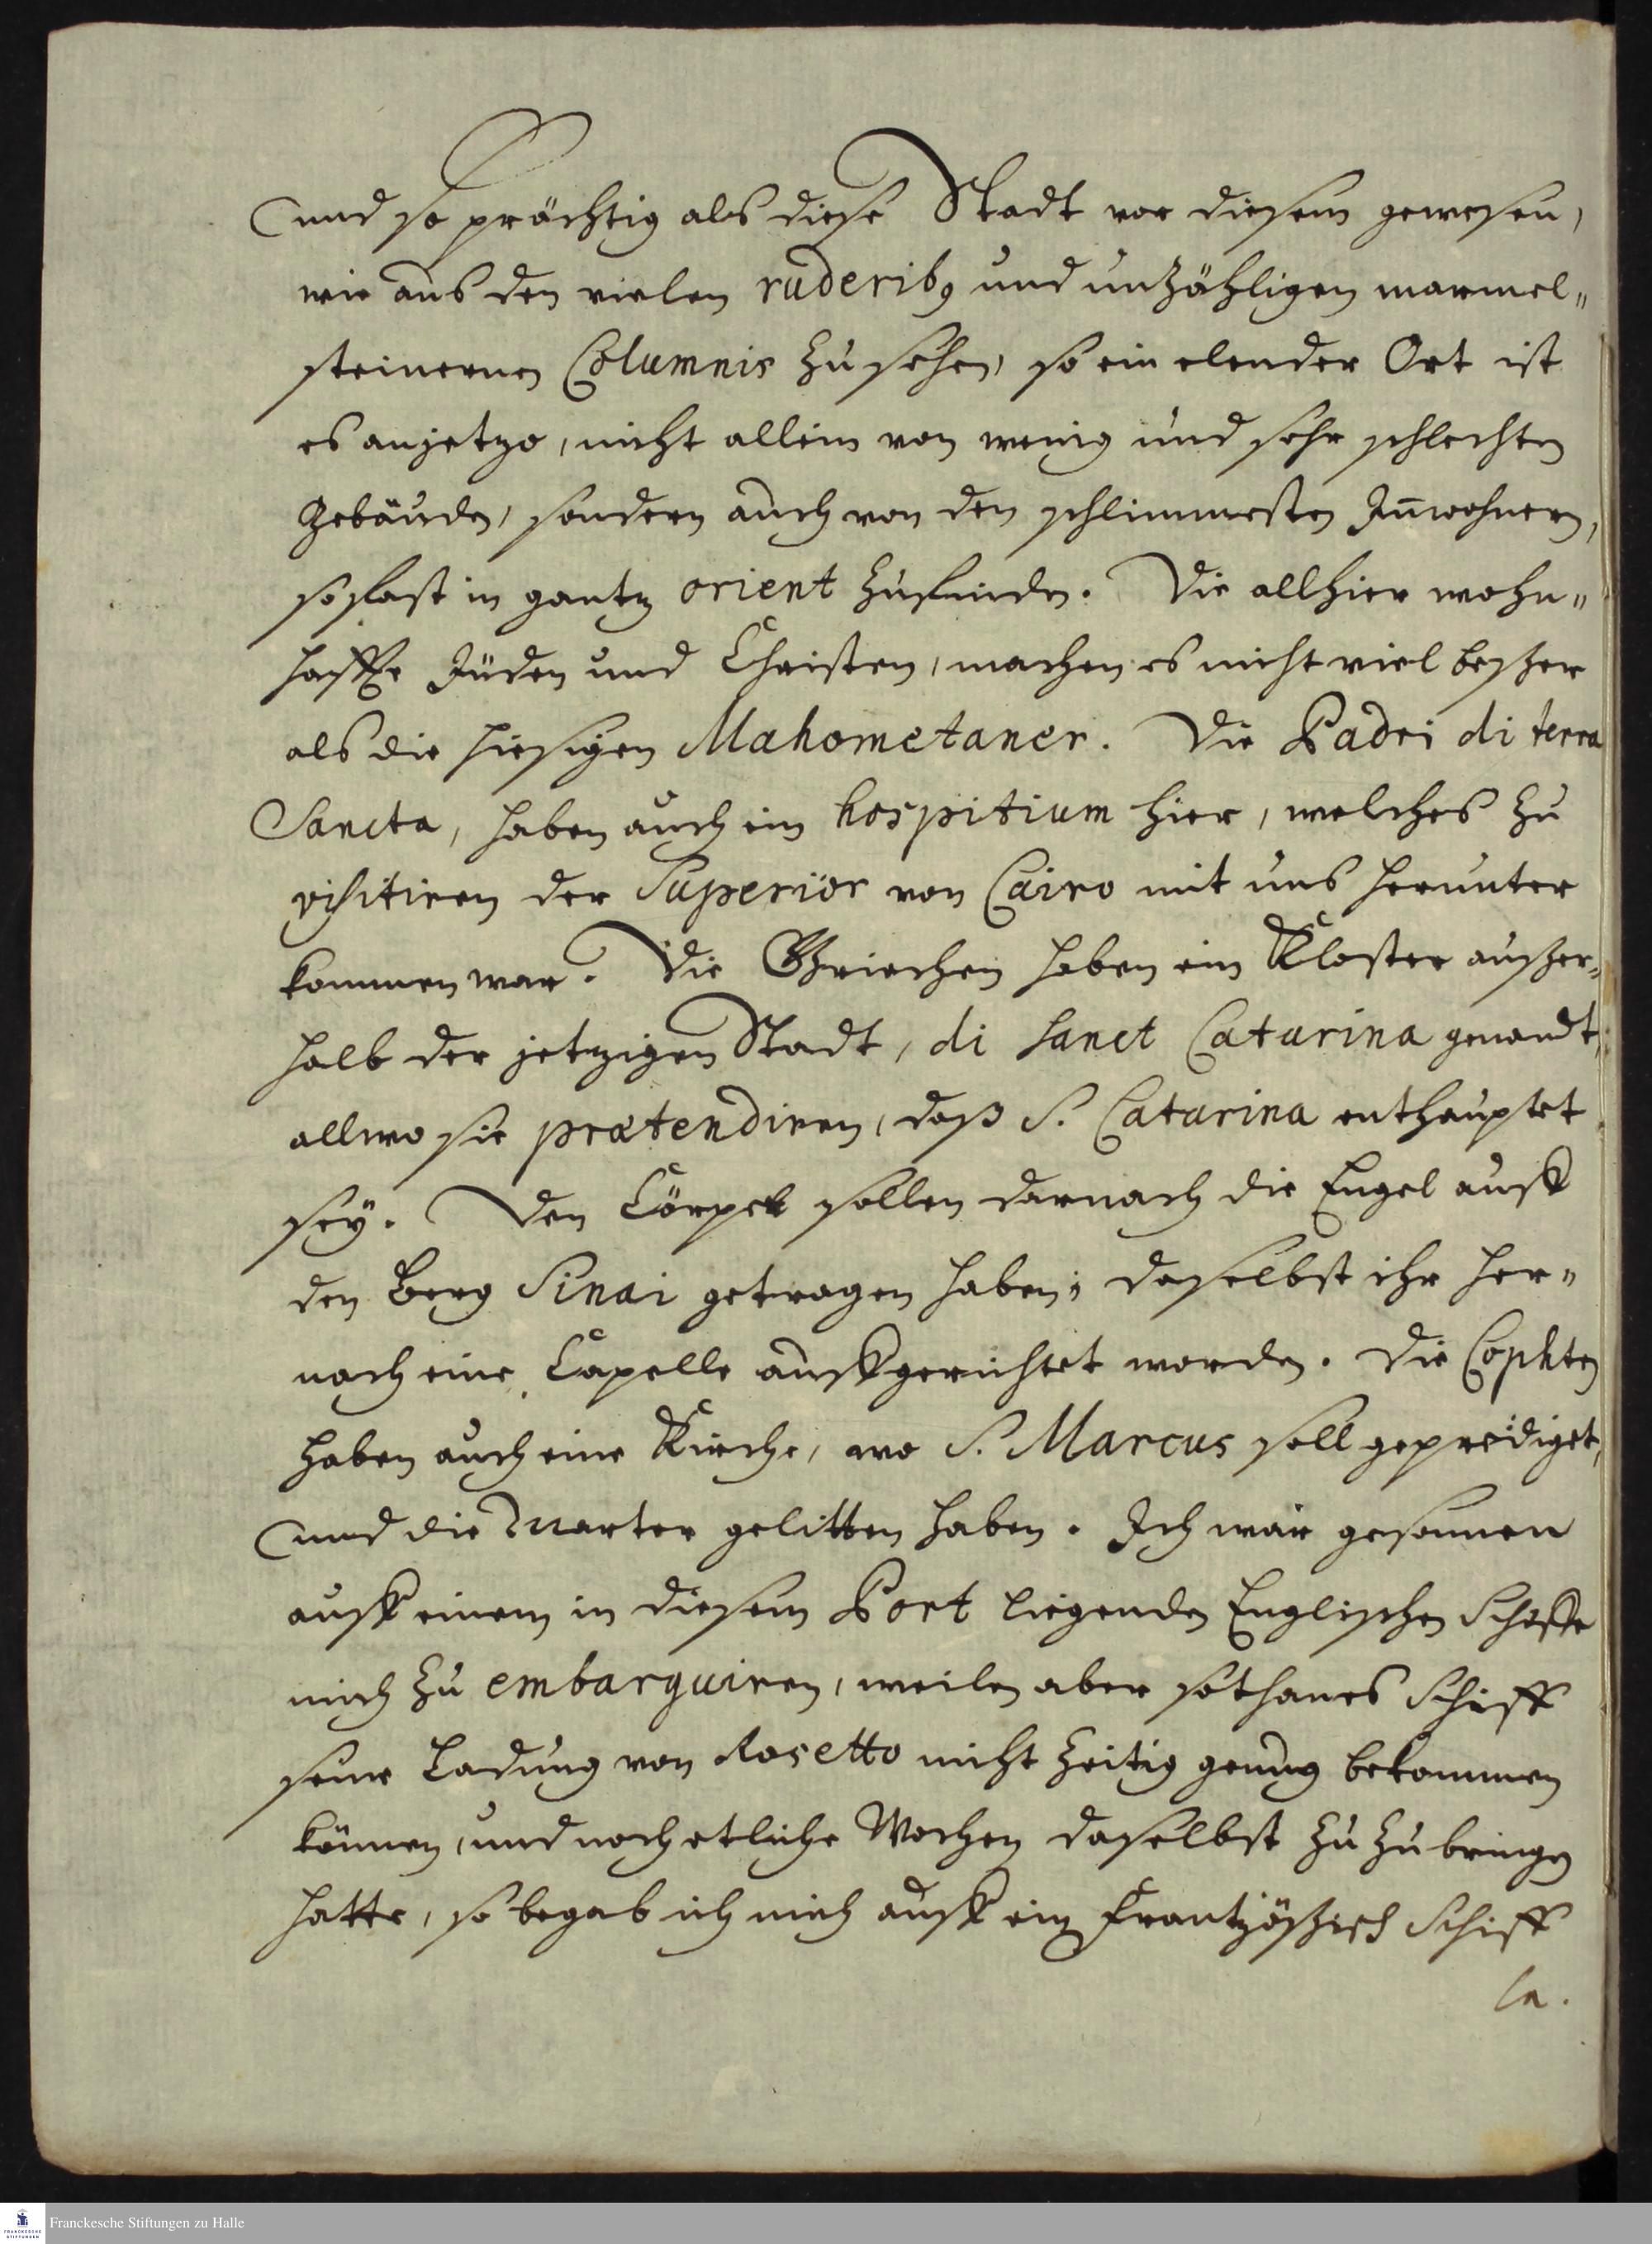 und so prächtig als diese Stadt vor diesem gewesen,
wie aus den vielen ruderibꝫ und unzähligen marmel„
steinernen Columnis zu sehen, so ein elender Ort ist
es anjetzo, nicht allein von wenig und sehr schlechten
Gebäuden, sondern auch von den schlimmesten Iñwohnern,
so fast in gantz orient zufinden. Die allhier wohn„
haffte Jüden und Christen, machen es nicht viel beszer
als die hiesigen Mahometaner. Die Padri di terra
Sancta, haben auch ein hospitium hier, welches zu
visitiren der Superior von Cairo mit uns herunter
kommen war. Die Griechen haben ein Kloster auszer„
halb der jetzigen Stadt, di sanct Catarina genandt,
allwo sie prætendiren, daß S. Catarina enthauptet
sey. Den Cörper sollen darnach die Engel auff
den Berg Sinai getragen haben; daselbst ihr her„
nach eine Capelle auffgerichtet worden. Die Cophten
haben auch eine Kirche, wo S. Marcus soll geprediget,
und die Marter gelitten haben. Ich war gesonnen
auff einem in diesem Port liegenden Englischen Schiffe
mich zu embarquiren, weilen aber sothanes Schiff
seine Ladung von Rosetto nicht zeitig genug bekommen
können, und noch etliche Wochen daselbst zu zu bringen
hatte, so begab ich mich auff ein Frantzöszisch Schiff
la.
Franckesche Stiftungen zu Halle